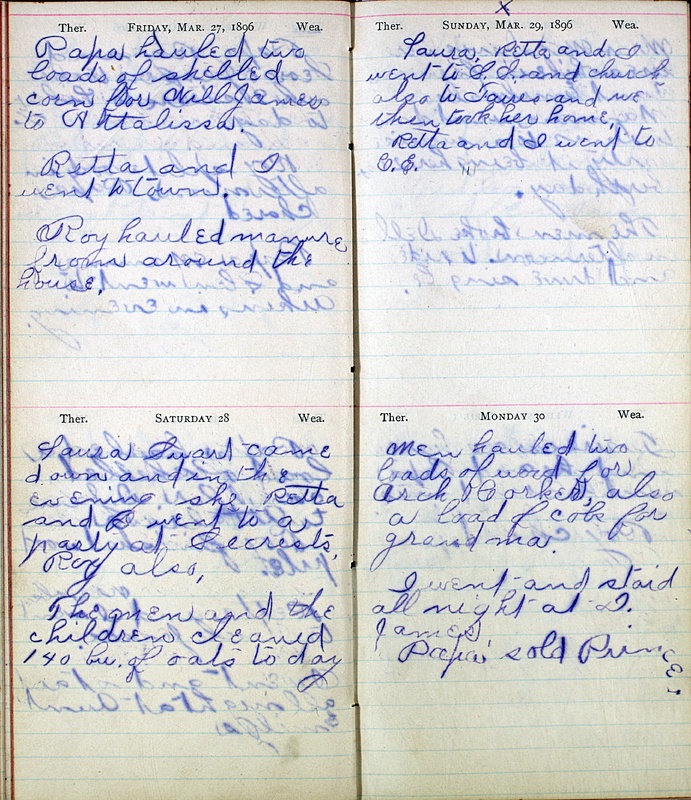 Ther. FRIDAY, MAR. 27, 1896 Wea.
Papa hauled two
loads of shelled
corn for Will James
to Attalissa.
Retta and I
went to town.
Roy hauled manure
from around the
house.
Ther. SATURDAY 28 Wea.
Laura Swart came
down and in the
evening she Retta
and I went to a
party at Secrests,
Roy also,
The men and the
children cleaned
140 bu. of oats to day
x
Ther. SUNDAY, MAR. 29, 1896 Wea.
Laura, Retta and I
went to S.S. and church
also to and we
then took her home,
Retta and I went to
C.E.
Ther. MONDAY 30 Wea.
Men hauled two
loads of wood for
Arch also
a load of cobs for
grandma.
I went and staid
all night at
James.
Papa sold Prince,